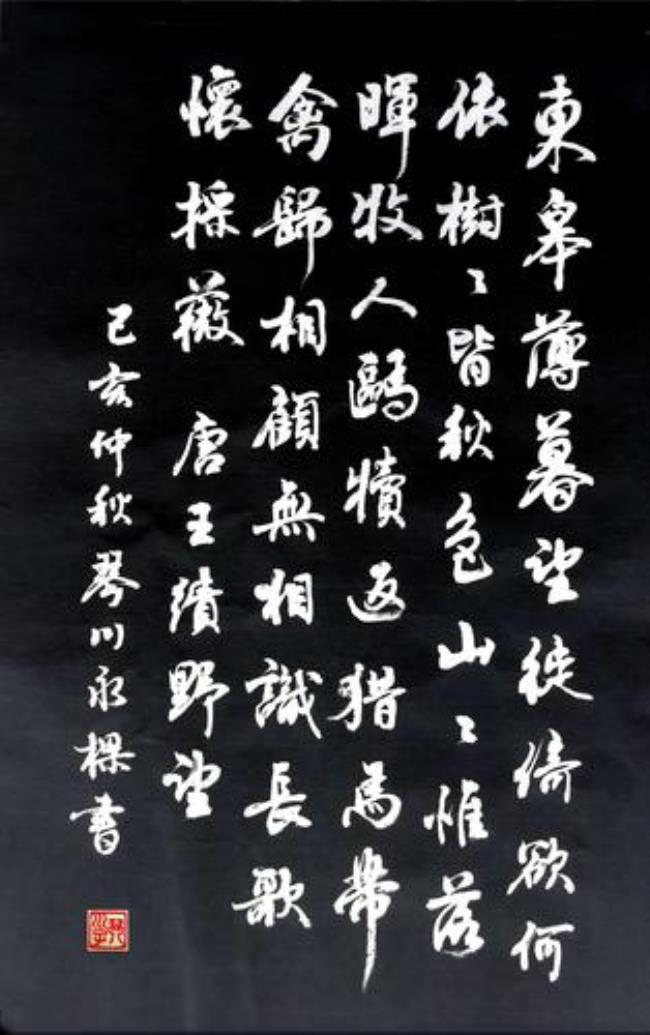 東皋薄暮望徙倚欲何
依樹〻皆秋色山〻惟落
暉牧人驅犢返猎馬帶
禽歸相顧無相識長歌
懷採薇 唐王績野望
己亥仲秋琴川永樑書